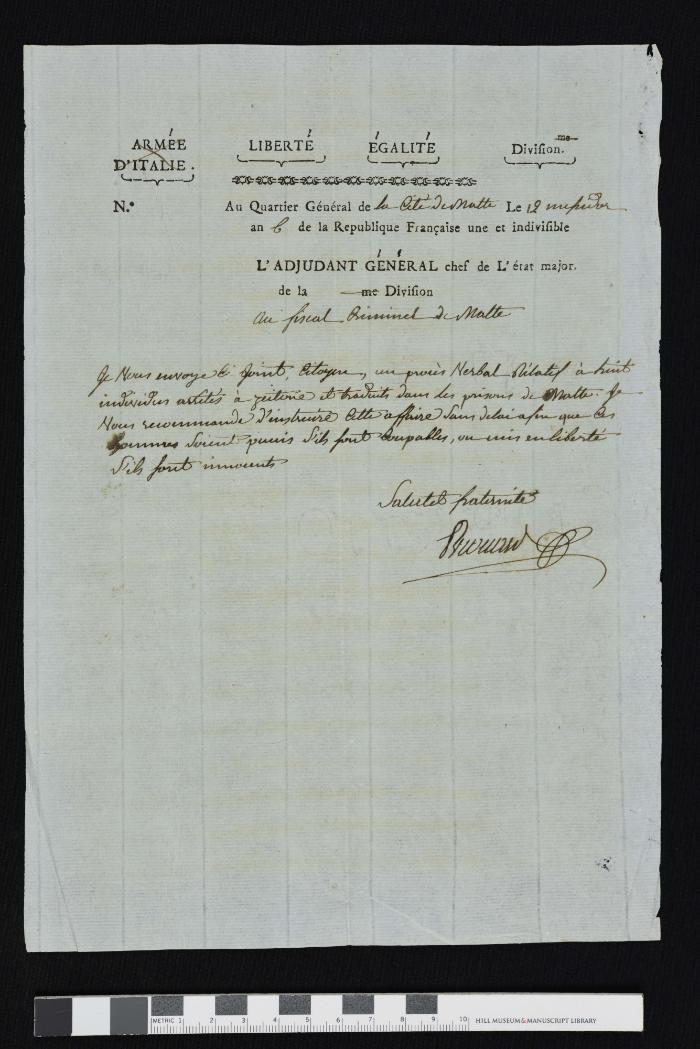 ARMÉE D'ITALIE.
LIBERTÉ
ÉGALITÉ
me Division.
N.º
Au Quartier Général de la Cité de Malte Le 12 messidor
an 6 de la Republique Française une et indivisible
L'ADJUDANT GÉNÉRAL chef de L'état major.
de la me Division
Au fiscal Criminel de Malte
Je Vous envoye Ci Joint, Citoyen, un procès Verbal Rélatif à huit
individus arrêtés à zeitone et traduits dans les prisons de Malte. Je
Vous recommande d'instruire Cette affaire Sans delai afin que Ces
hommes Soient punis S'ils sont Coupables, ou mis en liberté
S'ils sont innocents
Salut et fraternité
METRIC 1 2 3 4 5 6 7 8 9 10 HILL MUSEUM & MANUSCRIPT LIBRARY